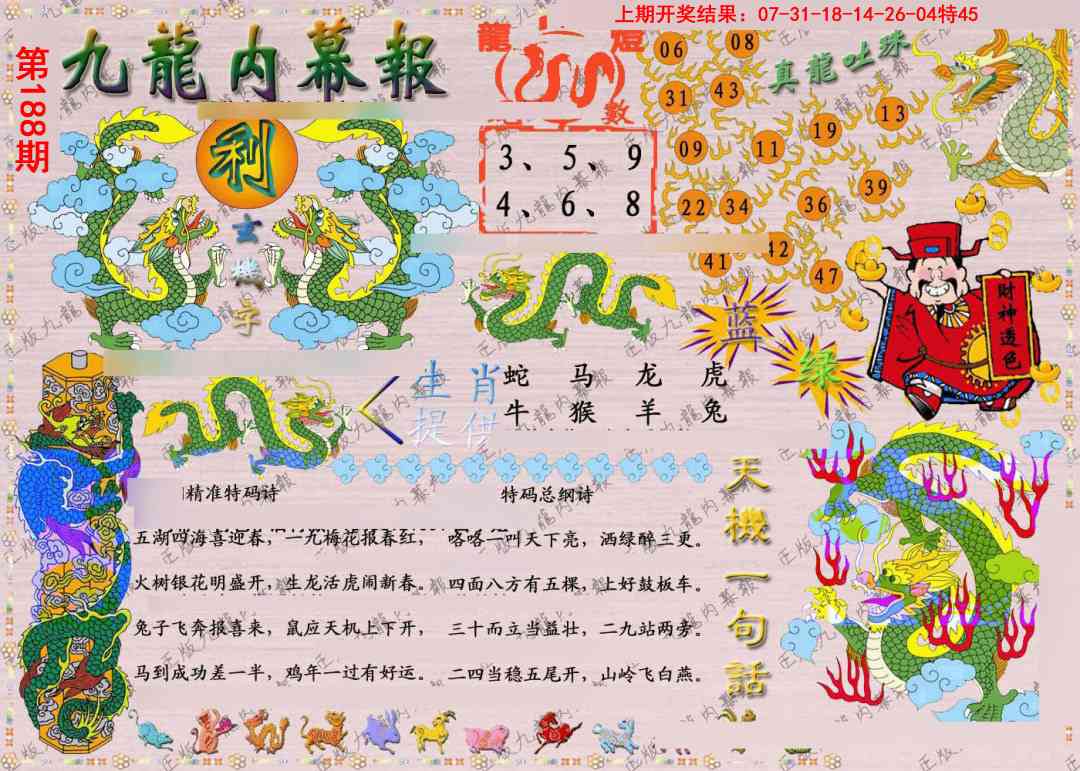 上期开奖结果：07-31-18-14-26-04特45
第188期
九龍内幕報
利
玄
機
字
龍
數
3、5、9
4、6、8
真龍吐珠
06
08
31
43
13
19
09
11
39
22
34
36
42
41
47
财神透色
蓝
绿
生肖提供
蛇 马 龙 虎
牛 猴 羊 兔
精准特码诗
五湖四海喜迎春，一九梅花报春红，
火树银花明盛开，生龙活虎闹新春。
兔子飞奔报喜来，鼠应天机上下开，
马到成功差一半，鸡年一过有好运。
特码总纲诗
咯咯一叫天下亮，洒绿醉三更。
四面八方有五棵，上好鼓板车。
三十而立当益壮，二九站两旁。
二四当稳五尾开，山岭飞白燕。
天機一句話
正版九龍内幕報